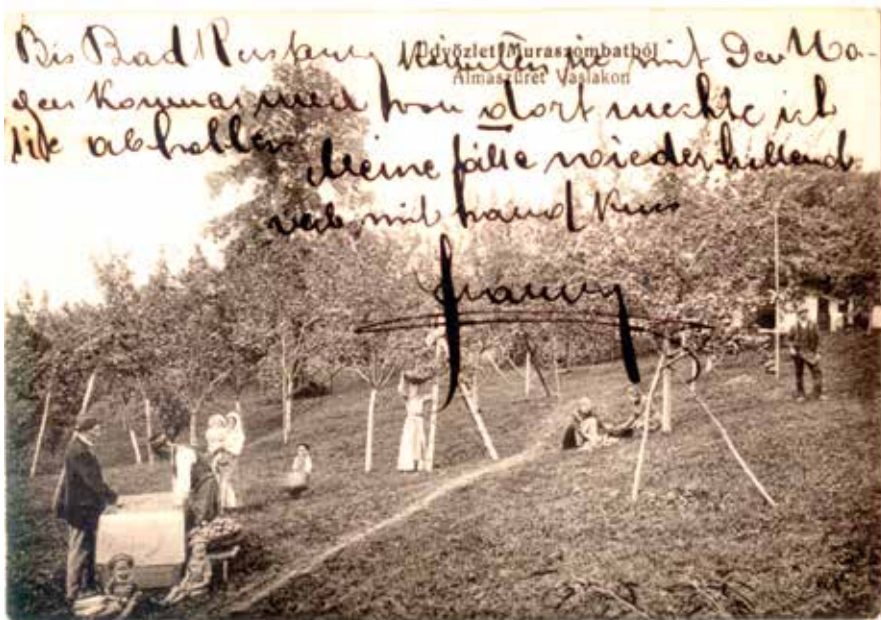 Üdvözlet Muraszombatból
Almaszüret Vaslakon
Bis Bad könnten sie mit Den Wa-
gen kommen von dort mechte ich
sie abhollen
Meine wiederhollend
mit hand Kuss